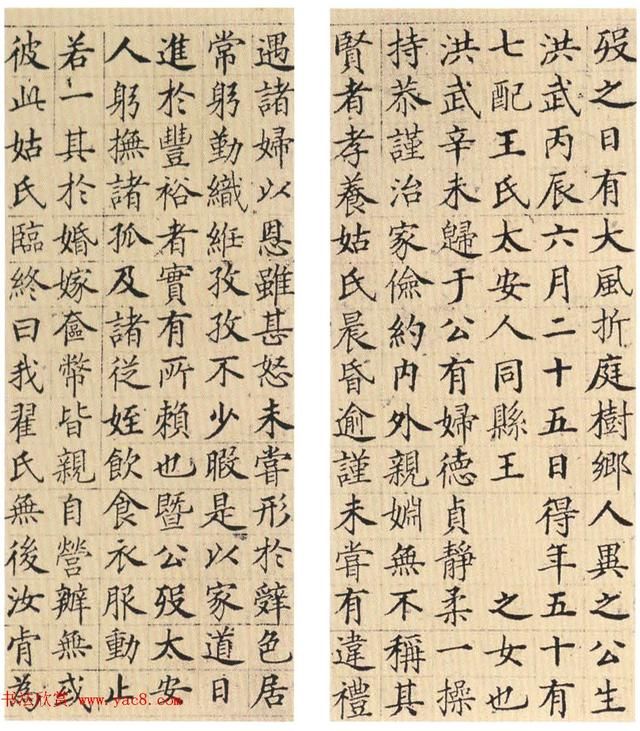 歿之日有大風折庭樹鄉人異之公生
洪武丙辰六月二十五日得年五十有
七配王氏太安人同縣王　之女也
洪武辛未歸于公有婦德貞靜柔一操
持恭謹治家儉約内外親婣無不稱其
賢者孝養姑氏晨昏逾謹未嘗有違禮
遇諸婦以恩雖甚怒未嘗形於辭色居
常躬勤織絍孜孜不少暇是以家道日
進於豐裕者實有所賴也暨公歿太安
人躬撫諸孤及諸從姪飲食衣服動止
若一其於婚嫁奩幣皆親自營辦無或
彼此姑氏臨終曰我翟氏無後汝肯為
书法欣赏 www.yac8.com